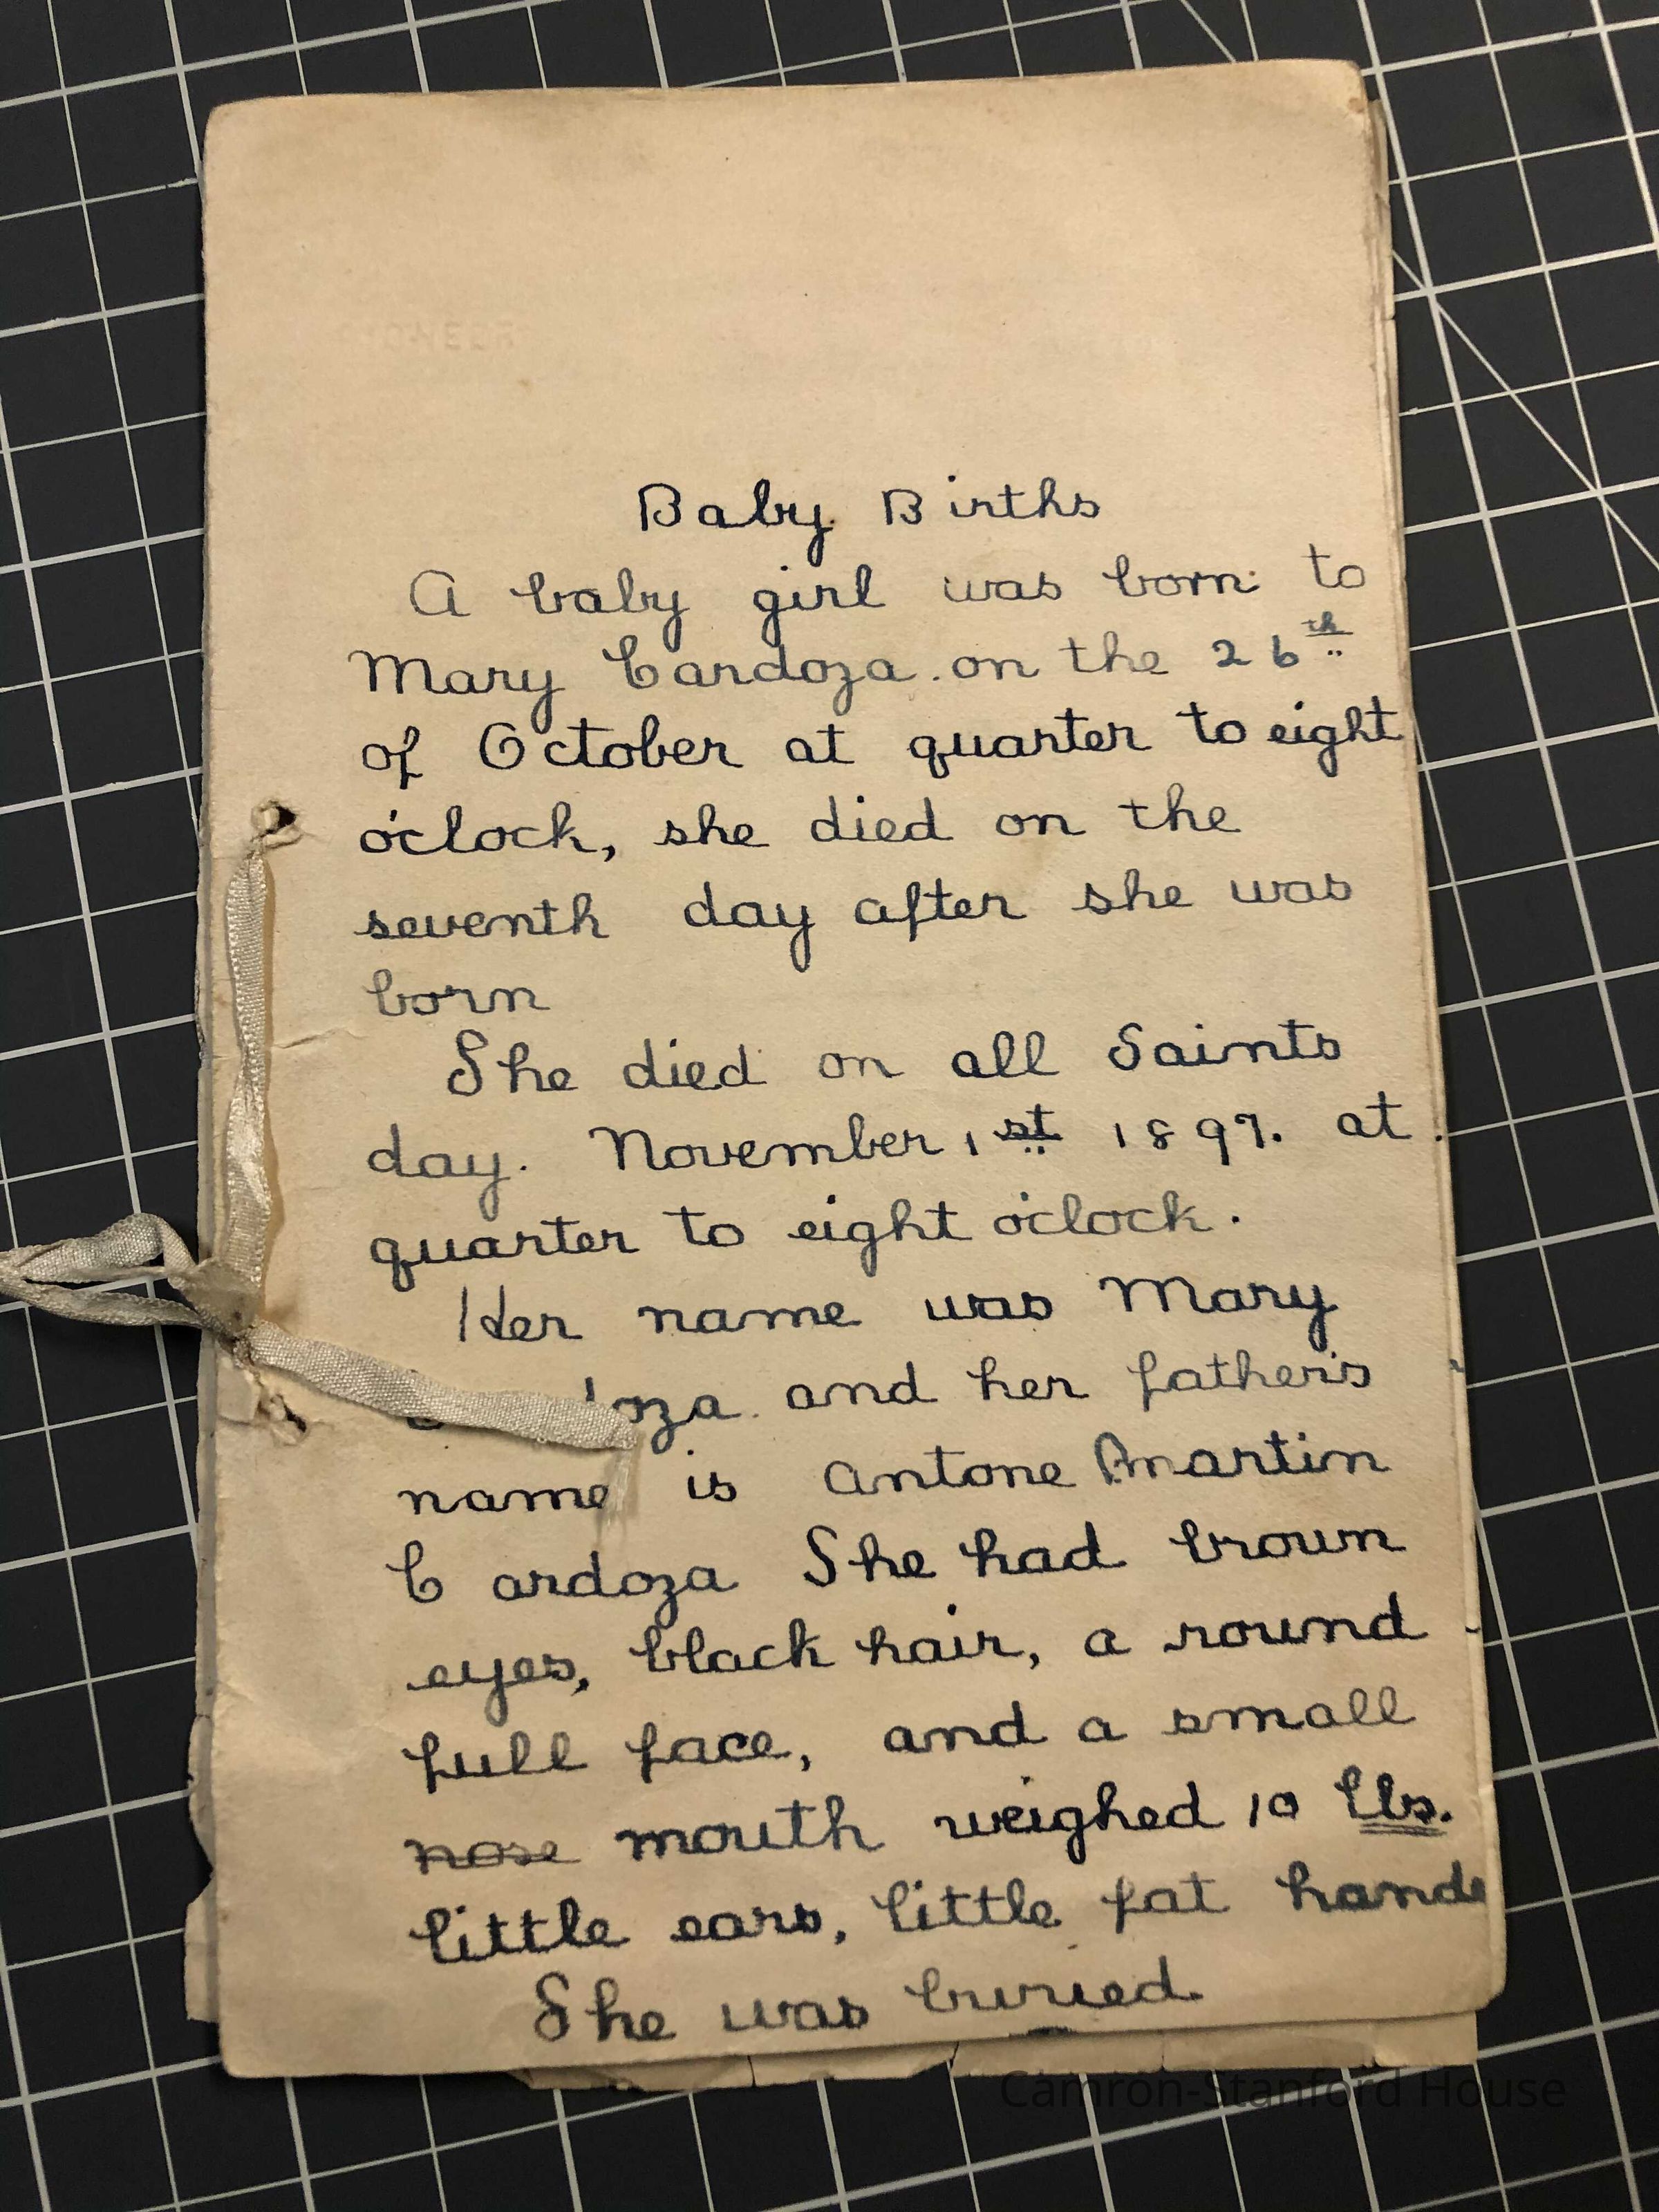 PIONEER
Baby Births
A baby girl was born to
Mary Cardoza. on the 26th
of October at quarter to eight
o'clock, she died on the
seventh day after she was
born
She died on all Saints
day. November 1st 1897. at.
quarter to eight o'clock.
Her name was Mary
and her father's
name is Antone Martin
Cardoza She had brown
eyes, black hair, a round
full face, and a small
nose mouth weighed 10 lbs.
little ears, little fat hands
She was buried.
Camron-Stanford House